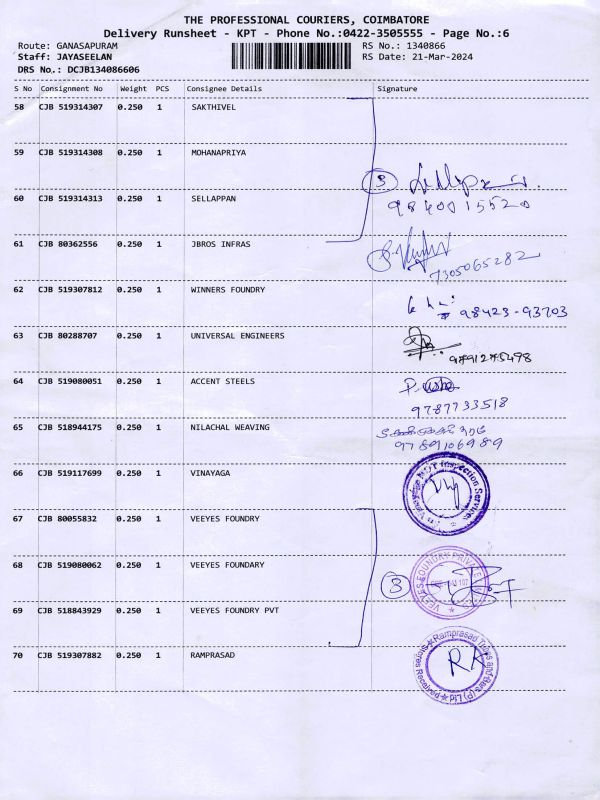 THE PROFESSIONAL COURIERS, COIMBATORE
Delivery Runsheet - KPT - Phone No.:0422-3505555 - Page No.:6
Route: GANASAPURAM RS No.: 1340866
Staff: JAYASEELAN RS Date: 21-Mar-2024
DRS No.: DCJB134086606
S No Consignment No Weight PCS Consignee Details Signature
58 CJB 519314307 0.250 1 SAKTHIVEL
59 CJB 519314308 0.250 1 MOHANAPRIYA
3
60 CJB 519314313 0.250 1 SELLAPPAN
9840015520
61 CJB 80362556 0.250 1 JBROS INFRAS
7305065282
62 CJB 519307812 0.250 1 WINNERS FOUNDRY
98423-93703
63 CJB 80288707 0.250 1 UNIVERSAL ENGINEERS
64 CJB 519080051 0.250 1 ACCENT STEELS
9787733518
65 CJB 518944175 0.250 1 NILACHAL WEAVING
9789106989
66 CJB 519117699 0.250 1 VINAYAGA
NDT Inspection Services
67 CJB 80055832 0.250 1 VEEYES FOUNDRY
68 CJB 519080062 0.250 1 VEEYES FOUNDARY
3
VEEYES FOUNDRY PRIVATE
69 CJB 518843929 0.250 1 VEEYES FOUNDRY PVT
70 CJB 519307882 0.250 1 RAMPRASAD
Ramprasad Tubes and Bars (P) Ltd
Stores Received
RK